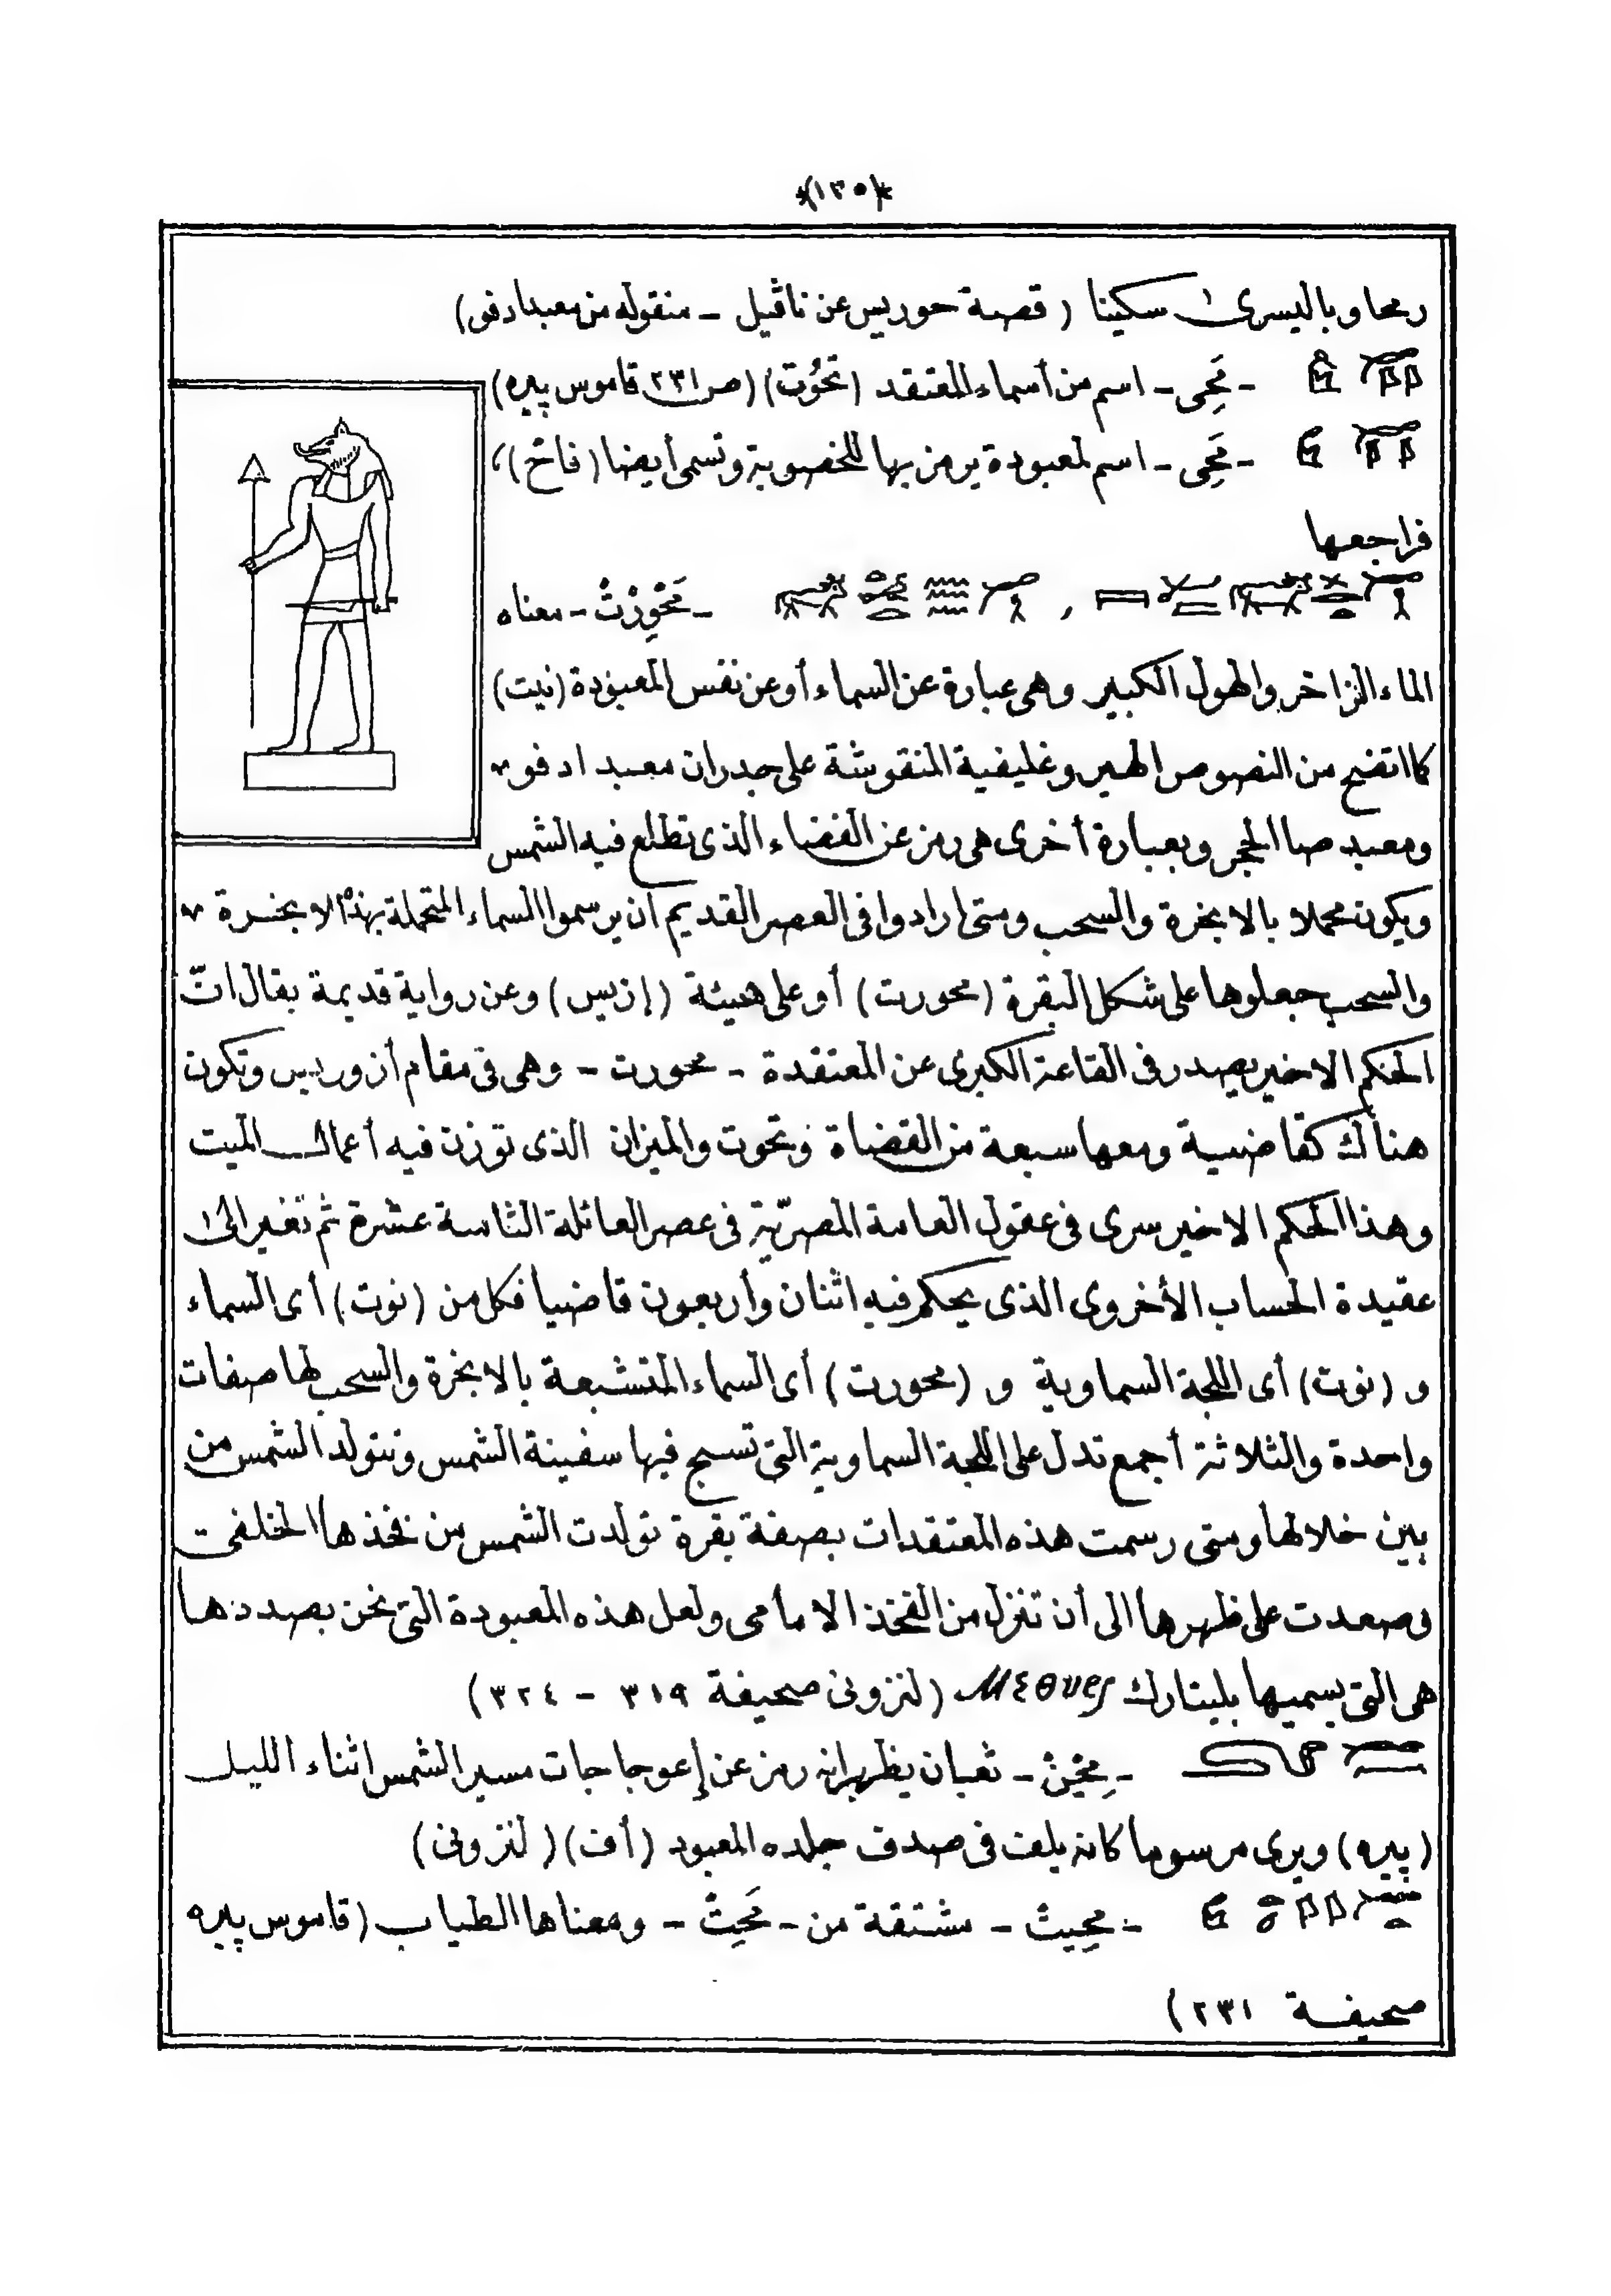 *(١٣٥)*
رمحا وباليسرى سكينا (قصة حوريس عن ناڤيل - منقوله من معبد ادفو)
- مَحِى - اسم من أسماء المعتقد (تحُوت) (صـ ٢٣١ قاموس پيره)
- مَحِى - اسم لمعبودة يرمز بها للخصوبة وتسمى أيضا (فاتخ)،
فراجعها
، - مَحْوِرْتْ - معناه
الماء الزاخر والهول الكبير وهى عبارة عن السماء أو عن نفس المعبودة (نيت)
كما اتضح من النصوص الهيروغليفية المنقوشة على جدران معبد ادفو
ومعبد صا الحجر وبعبارة أخرى هى رمز عن الفضاء الذى تطلع فيه الشمس
ويكون محملا بالابخرة والسحب ومتى ارادوا فى العصر القديم ان يرسموا السماء المتحملة بهذه الابخرة
والسحب جعلوها على شكل البقرة (محورت) أو على هيئة (إزيس) وعن رواية قديمة يقال انّ
الحكم الاخير يصدر فى القاعة الكبرى عن المعتقدة - محورت - وهى فى مقام أزوريس وتكون
هناك كقاضية ومعها سبعة من القضاة وتحوت والميزان الذى توزن فيه أعمال الميت
وهذا الحكم الاخير سرى فى عقول العامة المصريّة فى عصر العائلة الثامنة عشرة ثم تغير الى
عقيدة الحساب الأخروى الذى يحكم فيه اثنان وأربعون قاضيا فكل من (نوت) أى السماء
و (نوت) أى اللجة السماوية و (محورت) أى السماء المتشبعة بالابخرة والسحب لها صفات
واحدة والثلاثة أجمع تدل على اللجة السماوية التى تسبح فيها سفينة الشمس وتتولد الشمس من
بين خلالها ومتى رسمت هذه المعتقدات بصفة بقرة تولدت الشمس من فخذها الخلفى
وصعدت على ظهرها الى أن تنزل من الفخذ الامامى ولعل هذه المعبودة التى نحن بصددها
هى التى يسميها بليتارك Μεθυερ (لنزونى صحيفة ٣١٩ - ٣٢٤)
- مِحْنْ - ثعبان يظهر انه رمز عن إعوجاجات مسير الشمس اثناء الليل
(پيره) ويرى مرسوما كانه يلف فى صدف جلده المعبود (أف) (لنزونى)
- مِحِيتْ - مشتقة من - مَحِتْ - ومعناها الطياب (قاموس پيره
صحيفة ٢٣١)